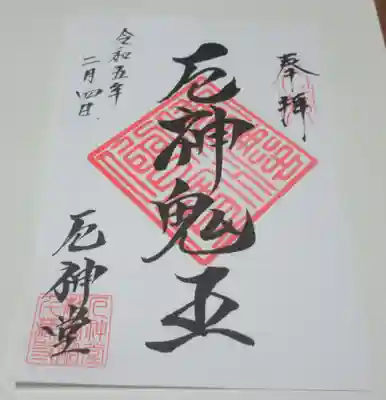 奉拝
厄神鬼王
令和五年
二月四日.
厄神堂